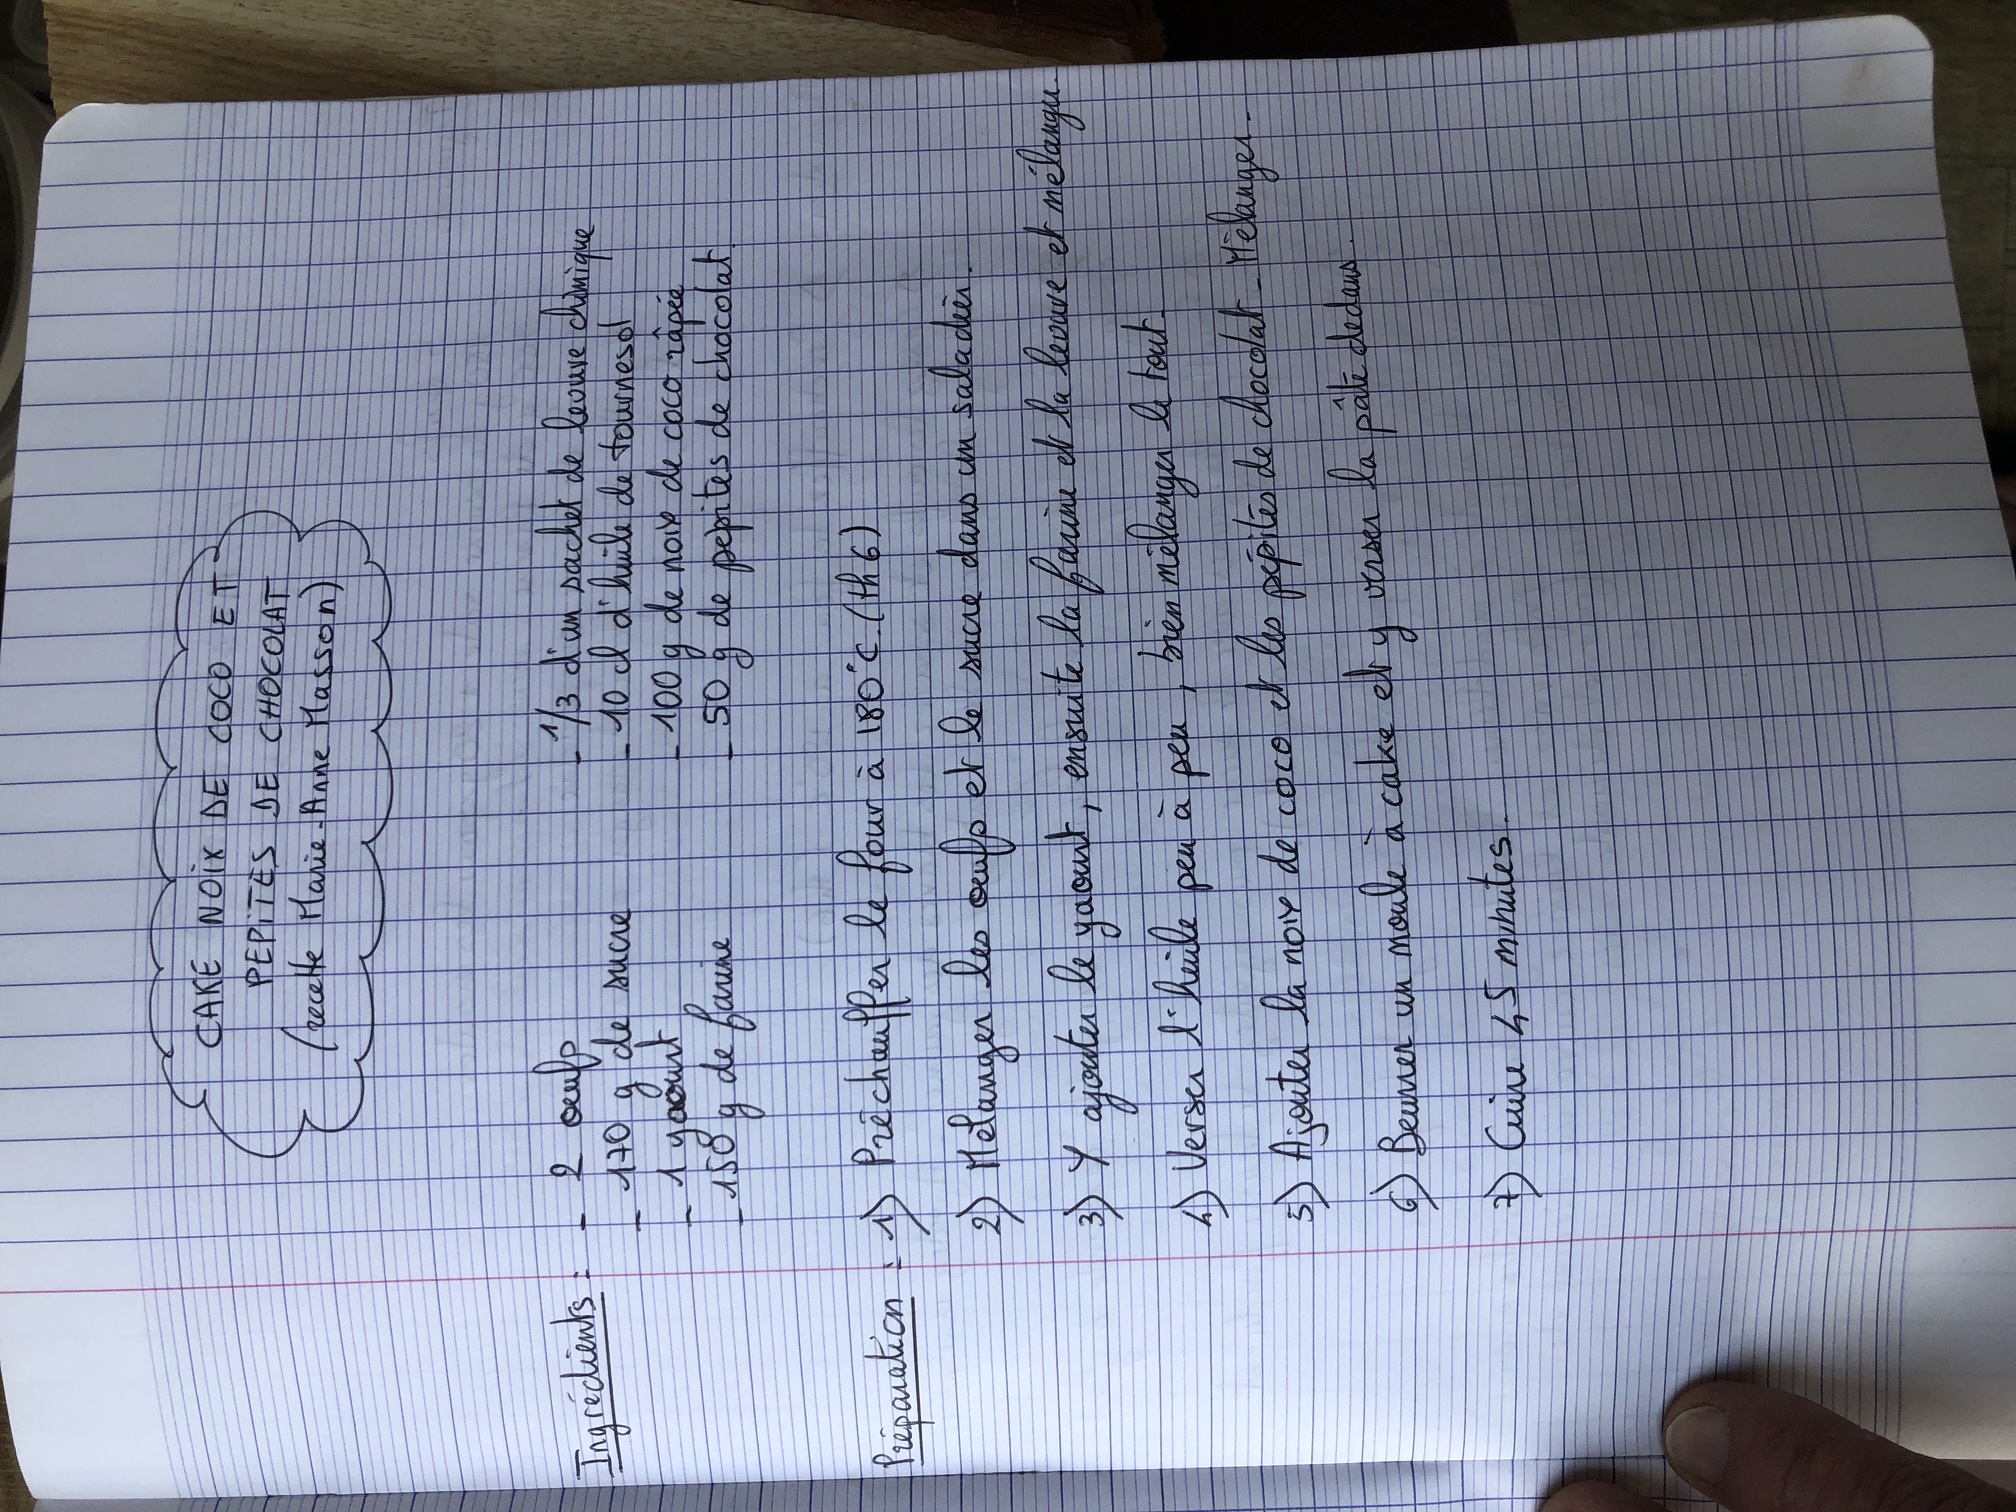 CAKE NOIX DE COCO ET
PEPITES DE CHOCOLAT
(recette Marie-Anne Masson)
Ingrédients : - 2 oeufs
- 170 g de sucre
- 1 yaourt
- 150 g de farine
- 1/3 d'un sachet de levure chimique
- 10 cl d'huile de tournesol
- 100 g de noix de coco râpée
- 50 g de pépites de chocolat.
Préparation : 1) Préchauffer le four à 180°C. (th 6)
2) Mélanger les oeufs et le sucre dans un saladier.
3) Y ajouter le yaourt, ensuite la farine et la levure et mélanger.
4) Verser l'huile peu à peu, bien mélanger le tout.
5) Ajouter la noix de coco et les pépites de chocolat - Mélanger.
6) Beurrer un moule à cake et y verser la pâte dedans.
7) Cuire 45 minutes.